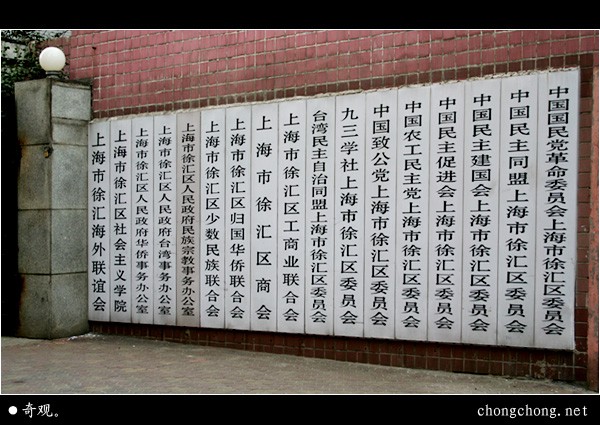 中国国民党革命委员会上海市徐汇区委员会
中国民主同盟上海市徐汇区委员会
中国民主建国会上海市徐汇区委员会
中国民主促进会上海市徐汇区委员会
中国农工民主党上海市徐汇区委员会
中国致公党上海市徐汇区委员会
九三学社上海市徐汇区委员会
台湾民主自治同盟上海市徐汇区委员会
上海市徐汇区工商业联合会
上海市徐汇区商会
上海市徐汇区归国华侨联合会
上海市徐汇区少数民族联合会
上海市徐汇区人民政府民族宗教事务办公室
上海市徐汇区人民政府台湾事务办公室
上海市徐汇区人民政府华侨事务办公室
上海市徐汇区社会主义学院
上海市徐汇海外联谊会
● 奇观。
chongchong.net